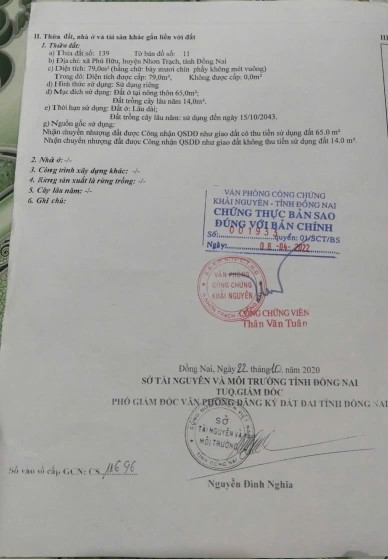 II. Thửa đất, nhà ở và tài sản khác gắn liền với đất
1. Thửa đất:
a) Thửa đất số: 139 Tờ bản đồ số: 11
b) Địa chỉ: xã Phú Hữu, huyện Nhơn Trạch, tỉnh Đồng Nai
c) Diện tích: 79,0m² (bằng chữ: bảy mươi chín phẩy không mét vuông)
Trong đó: Diện tích được cấp: 79,0m², Không được cấp: 0,0m²
d) Hình thức sử dụng: Sử dụng riêng
đ) Mục đích sử dụng: Đất ở tại nông thôn 65,0m²;
Đất trồng cây lâu năm 14,0m².
e) Thời hạn sử dụng: Đất ở: Lâu dài;
Đất trồng cây lâu năm: sử dụng đến ngày 15/10/2043.
g) Nguồn gốc sử dụng:
Nhận chuyển nhượng đất được Công nhận QSDĐ như giao đất có thu tiền sử dụng đất 65.0 m²
Nhận chuyển nhượng đất được Công nhận QSDĐ như giao đất không thu tiền sử dụng đất 14.0 m².
2. Nhà ở: -/-
3. Công trình xây dựng khác: -/-
4. Rừng sản xuất là rừng trồng: -/-
5. Cây lâu năm: -/-
6. Ghi chú:
VĂN PHÒNG CÔNG CHỨNG
KHẢI NGUYÊN - TỈNH ĐỒNG NAI
CHỨNG THỰC BẢN SAO
ĐÚNG VỚI BẢN CHÍNH
Số: 001933 quyển: 01/SCT/BS
Ngày: 08-04-2022
VĂN PHÒNG
CÔNG CHỨNG
KHẢI NGUYÊN
CÔNG CHỨNG VIÊN
Thân Văn Tuân
Đồng Nai, Ngày 22 tháng 10 năm 2020
SỞ TÀI NGUYÊN VÀ MÔI TRƯỜNG TỈNH ĐỒNG NAI
TUQ.GIÁM ĐỐC
PHÓ GIÁM ĐỐC VĂN PHÒNG ĐĂNG KÝ ĐẤT ĐAI TỈNH ĐỒNG NAI
SỞ
TÀI NGUYÊN VÀ
MÔI TRƯỜNG
Số vào sổ cấp GCN: CS
Nguyễn Đình Nghĩa